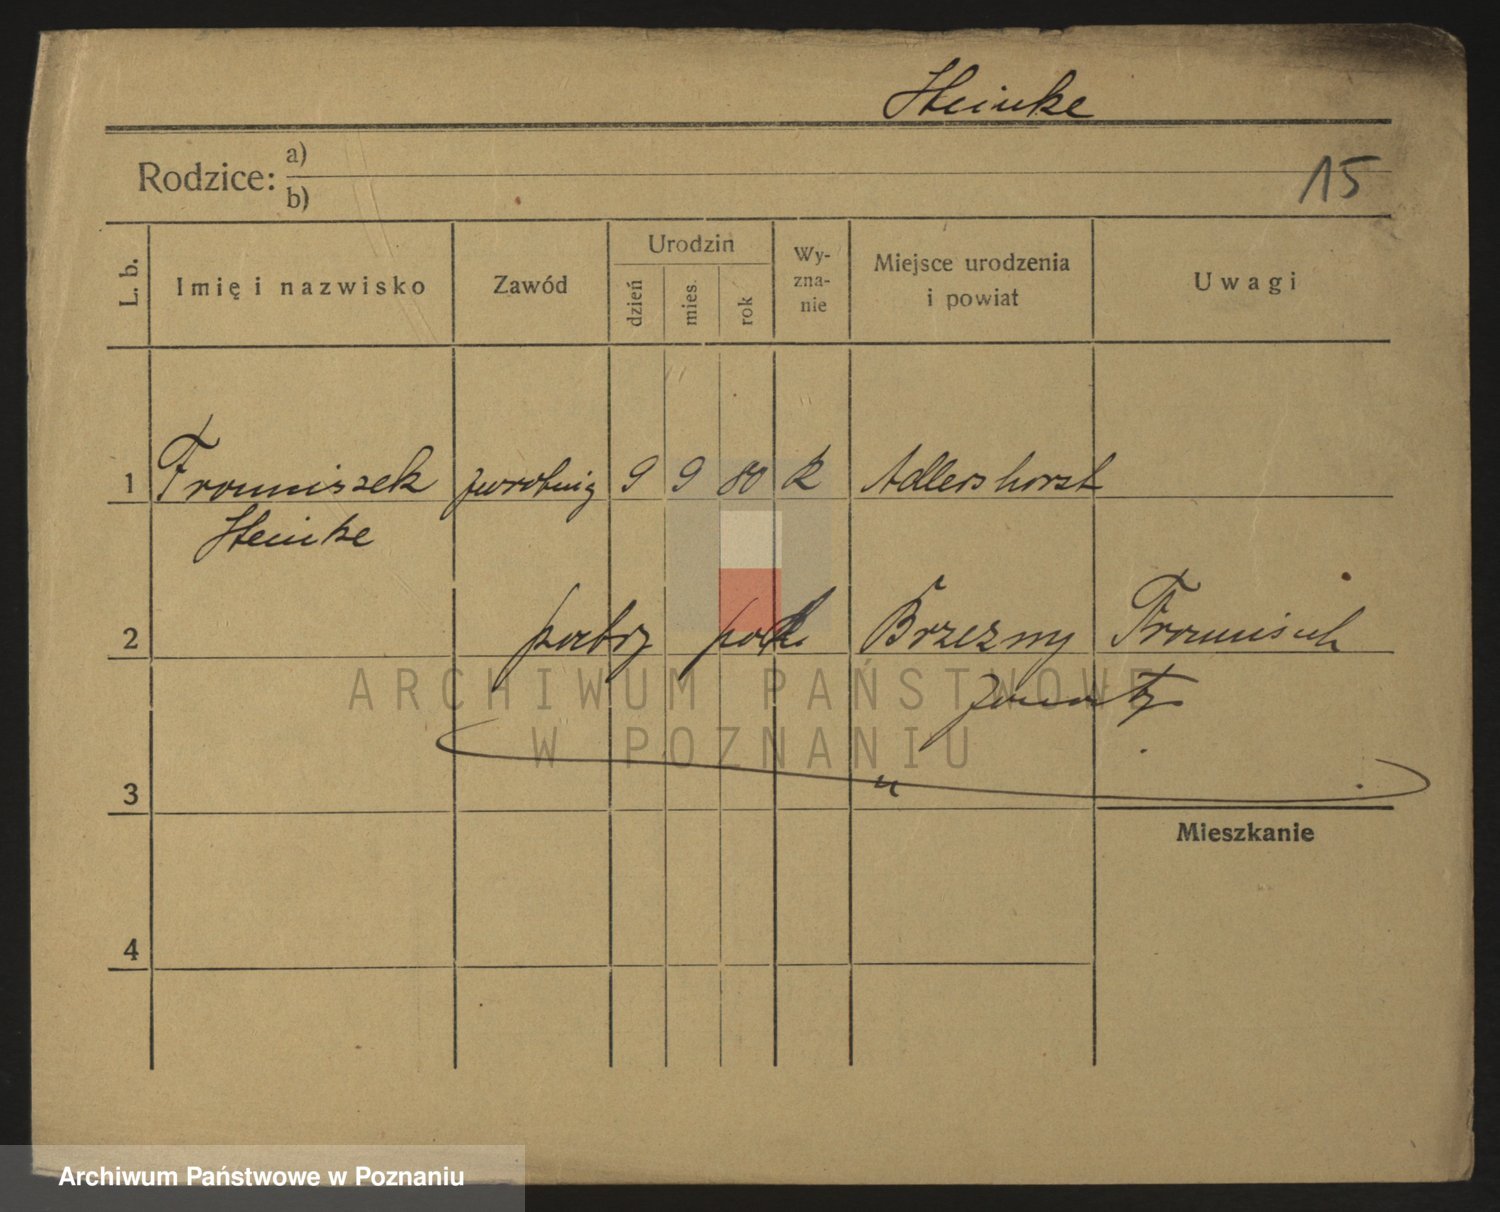 Heinke
Rodzice: a)
b)
15
L. b. Imię i nazwisko Zawód Urodzin dzień mies. rok Wy-zna-nie Miejsce urodzenia i powiat Uwagi
1 Franciszek 9 9 80 k Adlershorst
Heinke
2 Brzezny Franciszek
ARCHIWUM PAŃSTWOWE
W POZNANIU
3
Mieszkanie
4
Archiwum Państwowe w Poznaniu